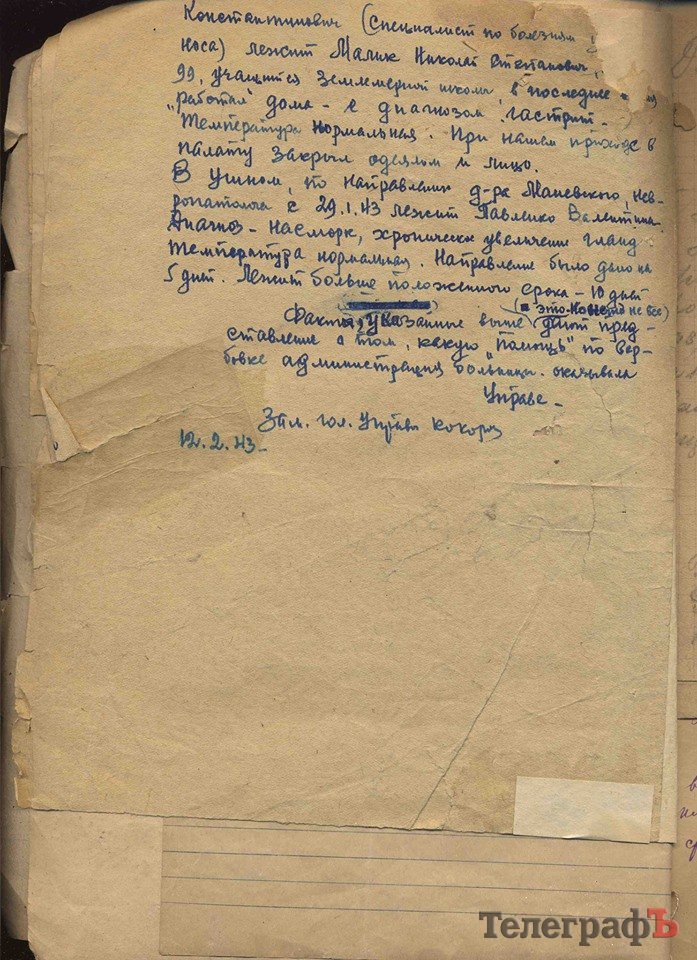 Константинович (специалист по болезням
носа) лежит Малик Николай Степанович,
99, учащийся землемерной школы, в последнее
"работал" дома - с диагнозом гастрит.
Температура нормальная. При нашем приходе в
палату закрыл одеялом и лицо.
В ушном, по направлению д-ра Маневского, нев-
ропатолога с 29.1.43 лежит Павленко Валентина.
Диагноз - насморк, хроническое увеличение гланд
Температура нормальная. Направление было дано на
5 дней. Лежит больше положенного срока - 10 дней
(а это конечно не все)
Факты, указанные выше дают пред-
ставление о том, какую "помощь" по вер-
бовке администрация больницы оказывала
Управе -
Зам. гол. Управи Кокоря
12.2.43 -
ТелеграфЪ